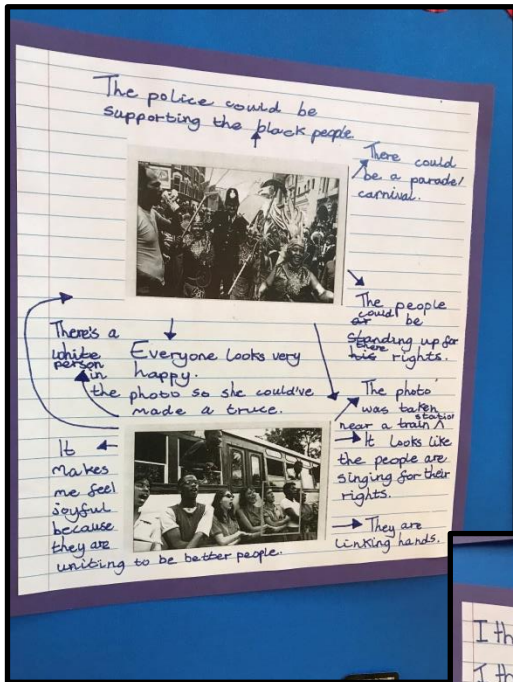 The police could be
supporting the black people
There could
be a parade/
carnival.
The people
could
ar be
standing up for
there
his rights.
There's a
white
person
in
the photo so she could've
made a truce.
Everyone looks very
happy.
The photo
was taken
station
near a train ^
It looks like
the people are
singing for their
rights.
They are
linking hands.
It
makes
me feel
joyful
because
they are
uniting to be better people.
I th
I th